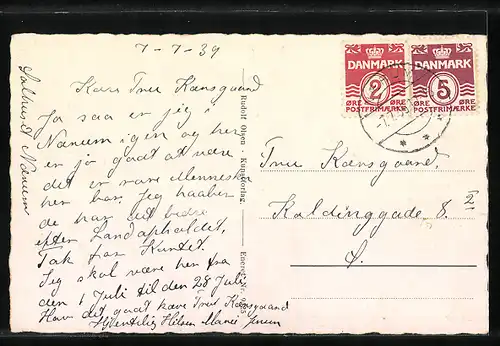 7-7-39
Kære Fru Kærsgaard
Ja saa er jeg i
Nanum igen og her
er jo godt at være
det er rare Mennesker
her bor, Jeg haaber
de har det bedre
efter Landopholdet,
Tak for Kortet.
Jeg skal være her fra
den 1 Juli til den 28 Juli
Hav det godt kære Fru Kærsgaard
Hjertelig Hilsen Marie
Nanum
Rudolf Olsen - Kunstforlag.
Eneret Nr.
DANMARK
2
ØRE ØRE
POSTFRIMÆRKE
DANMARK
5
ØRE ØRE
POSTFRIMÆRKE
Fru Kærsgaard,
Koldinggade 8 2